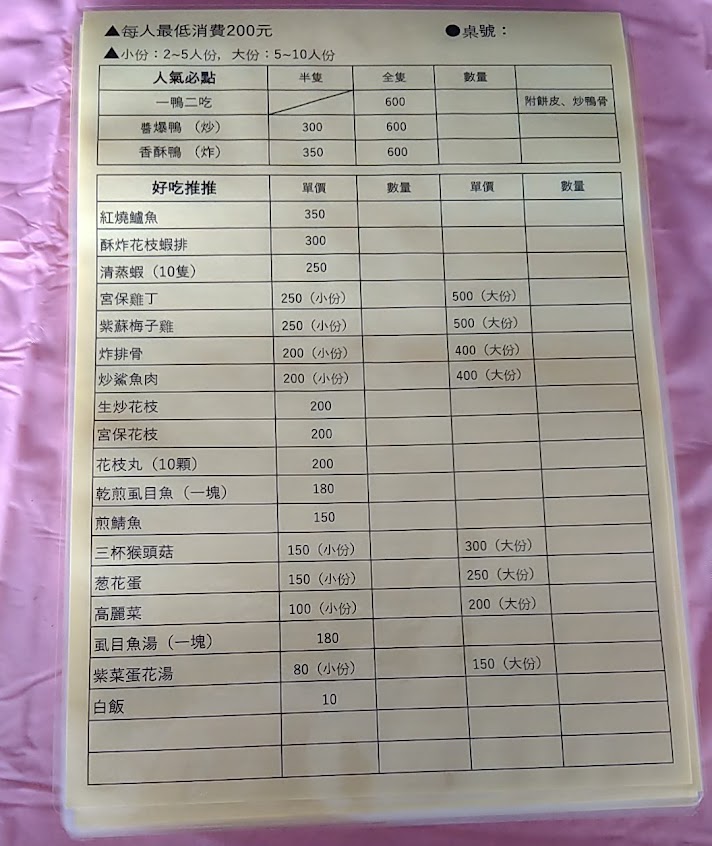 ▲每人最低消費200元 ●桌號：
▲小份：2~5人份，大份：5~10人份
人氣必點 半隻 全隻 數量
一鴨二吃 600 附餅皮、炒鴨骨
醬爆鴨 （炒） 300 600
香酥鴨 （炸） 350 600
好吃推推 單價 數量 單價 數量
紅燒鱸魚 350
酥炸花枝蝦排 300
清蒸蝦（10隻） 250
宮保雞丁 250（小份） 500（大份）
紫蘇梅子雞 250（小份） 500（大份）
炸排骨 200（小份） 400（大份）
炒鯊魚肉 200（小份） 400（大份）
生炒花枝 200
宮保花枝 200
花枝丸（10顆） 200
乾煎虱目魚（一塊） 180
煎鯖魚 150
三杯猴頭菇 150（小份） 300（大份）
葱花蛋 150（小份） 250（大份）
高麗菜 100（小份） 200（大份）
虱目魚湯（一塊） 180
紫菜蛋花湯 80（小份） 150（大份）
白飯 10